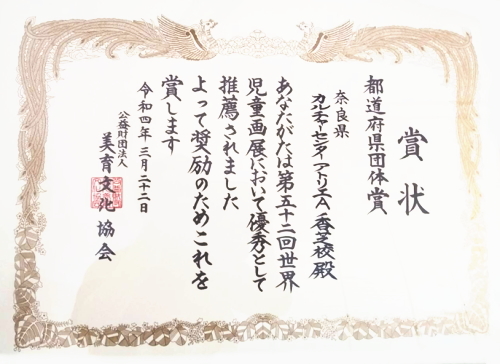 賞状
都道府県団体賞
奈良県
カルチャーセンターアトリエA香芝校殿
あなたがたは第五十二回世界
児童画展において優秀として
推薦されました
よって奨励のためこれを
賞します
令和四年三月二十二日
公益財団法人
美育文化協会